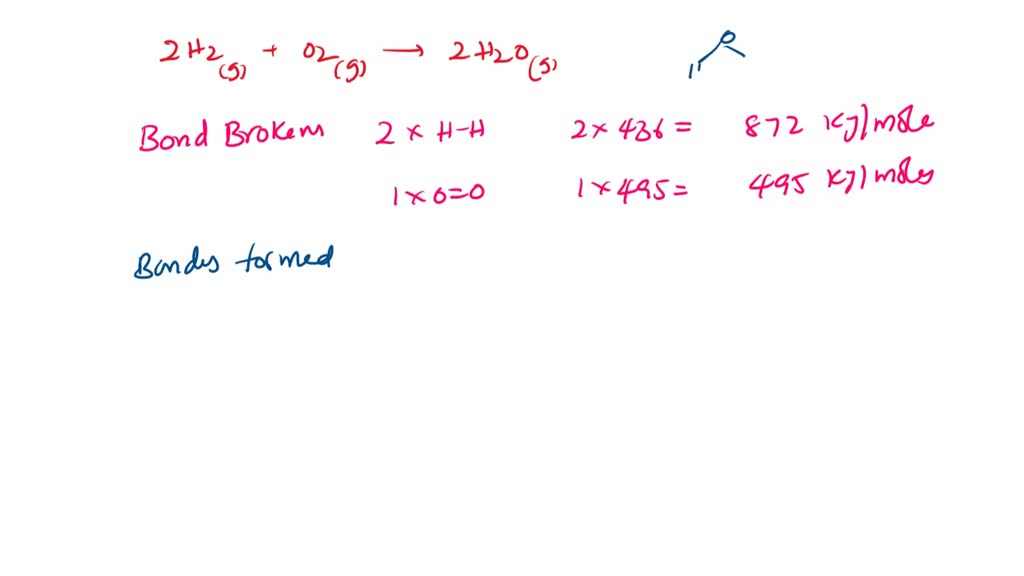 2H2(g) + O2(g) → 2H2O(g)
Bond Broken 2 x H-H 2 x 436 = 872 KJ/mole
1 x O=O 1 x 495 = 495 KJ/moles
Bonds formed